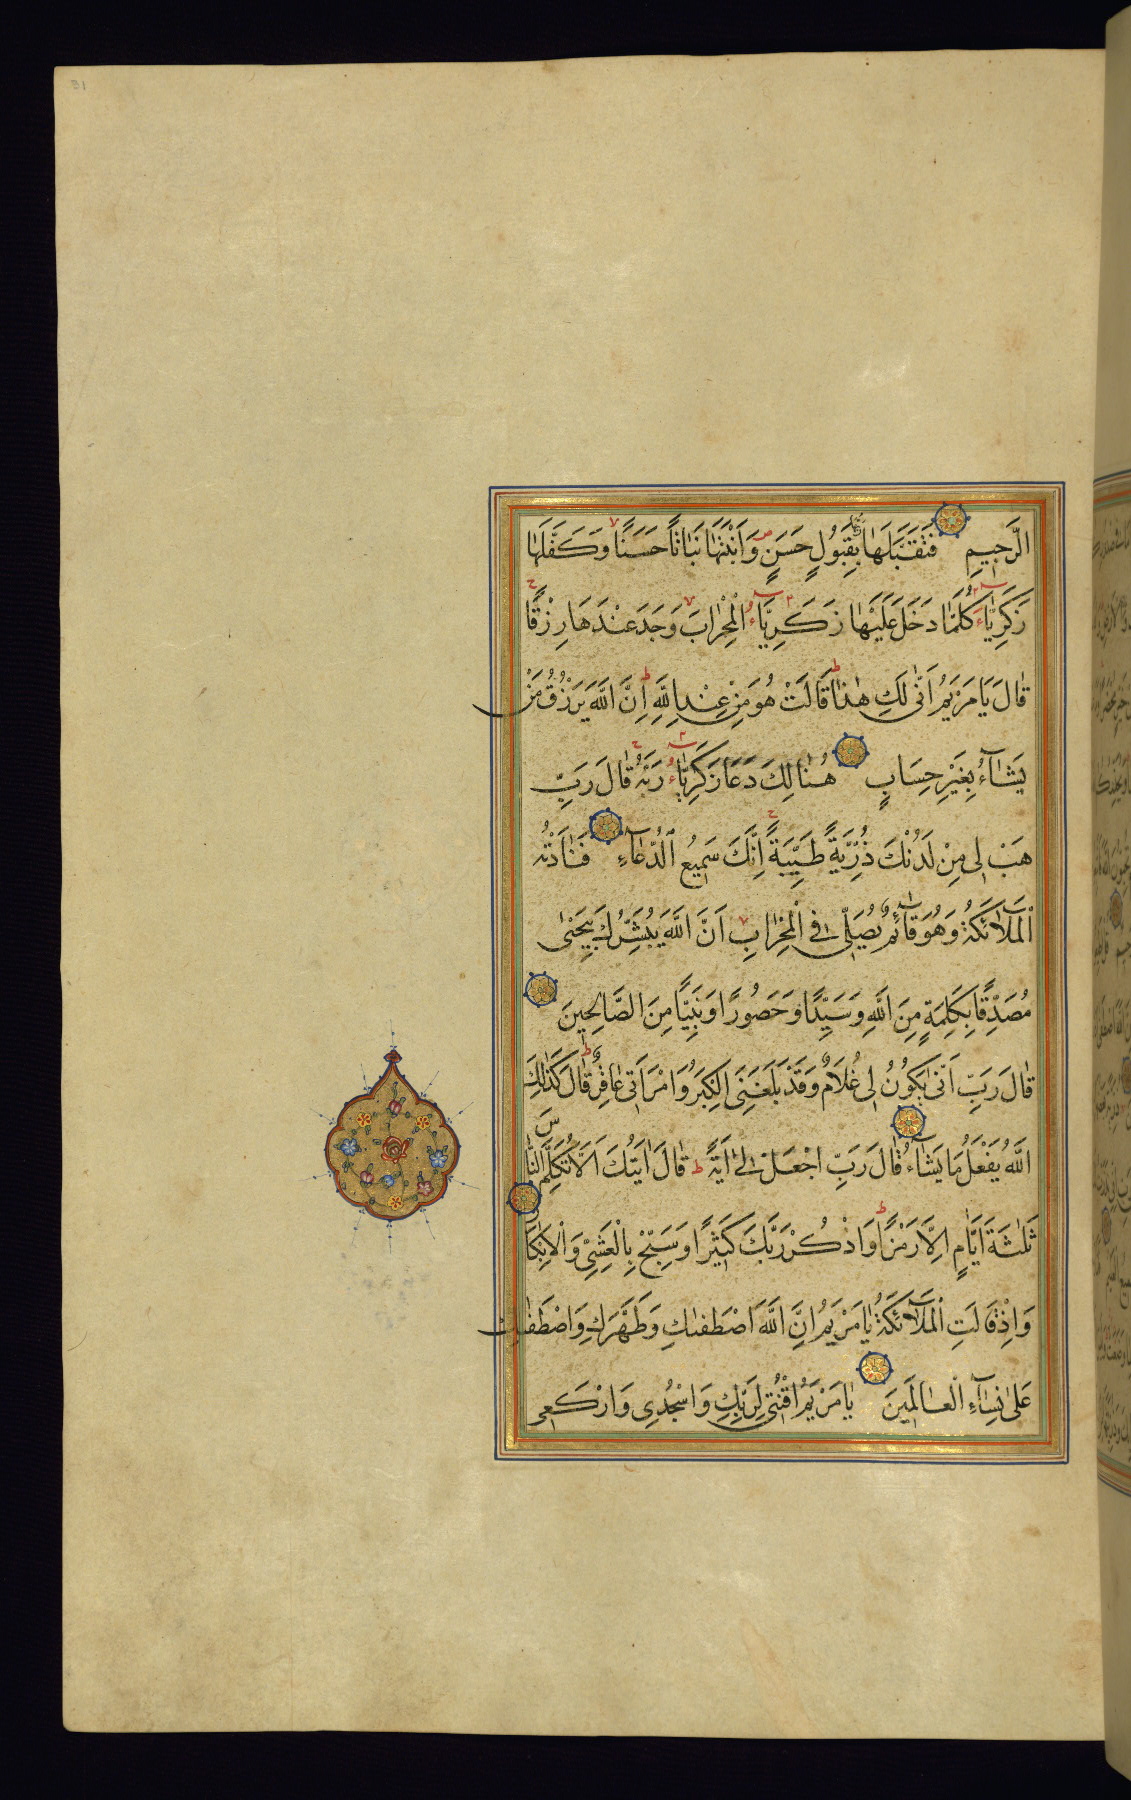 الرَّجِيمِ فَتَقَبَّلَهَا رَبُّهَا بِقَبُولٍ حَسَنٍ وَاَنْبَتَهَا نَبَاتًا حَسَنًا وَكَفَّلَهَا
زَكَرِيَّاءَ كُلَّمَا دَخَلَ عَلَيْهَا زَكَرِيَّاءُ الْمِحْرَابَ وَجَدَ عِنْدَهَا رِزْقًا
قَالَ يَا مَرْيَمُ اَنّٰى لَكِ هٰذَا قَالَتْ هُوَ مِنْ عِنْدِ اللَّهِ اِنَّ اللَّهَ يَرْزُقُ مَنْ
يَشَآءُ بِغَيْرِ حِسَابٍ هُنَالِكَ دَعَا زَكَرِيَّاءُ رَبَّهُ قَالَ رَبِّ
هَبْ لِى مِنْ لَدُنْكَ ذُرِّيَّةً طَيِّبَةً اِنَّكَ سَمِيعُ الدُّعَآءِ فَنَادَتْهُ
الْمَلَآئِكَةُ وَهُوَ قَآئِمٌ يُصَلِّى فِى الْمِحْرَابِ اَنَّ اللَّهَ يُبَشِّرُكَ بِيَحْيٰى
مُصَدِّقًا بِكَلِمَةٍ مِنَ اللَّهِ وَسَيِّدًا وَحَصُورًا وَنَبِيًّا مِنَ الصَّالِحِينَ
قَالَ رَبِّ اَنّٰى يَكُونُ لِى غُلَامٌ وَقَدْ بَلَغَنِىَ الْكِبَرُ وَامْرَاَتِى عَاقِرٌ قَالَ كَذٰلِكَ
اللَّهُ يَفْعَلُ مَا يَشَآءُ قَالَ رَبِّ اجْعَلْ لِى اٰيَةً قَالَ اٰيَتُكَ اَلَّا تُكَلِّمَ النَّاسَ
ثَلٰثَةَ اَيَّامٍ اِلَّا رَمْزًا وَاذْكُرْ رَبَّكَ كَثِيرًا وَسَبِّحْ بِالْعَشِىِّ وَالْاِبْكَارِ
وَاِذْ قَالَتِ الْمَلَآئِكَةُ يَا مَرْيَمُ اِنَّ اللَّهَ اصْطَفٰىكِ وَطَهَّرَكِ وَاصْطَفٰىكِ
عَلٰى نِسَآءِ الْعَالَمِينَ يَا مَرْيَمُ اقْنُتِى لِرَبِّكِ وَاسْجُدِى وَارْكَعِى